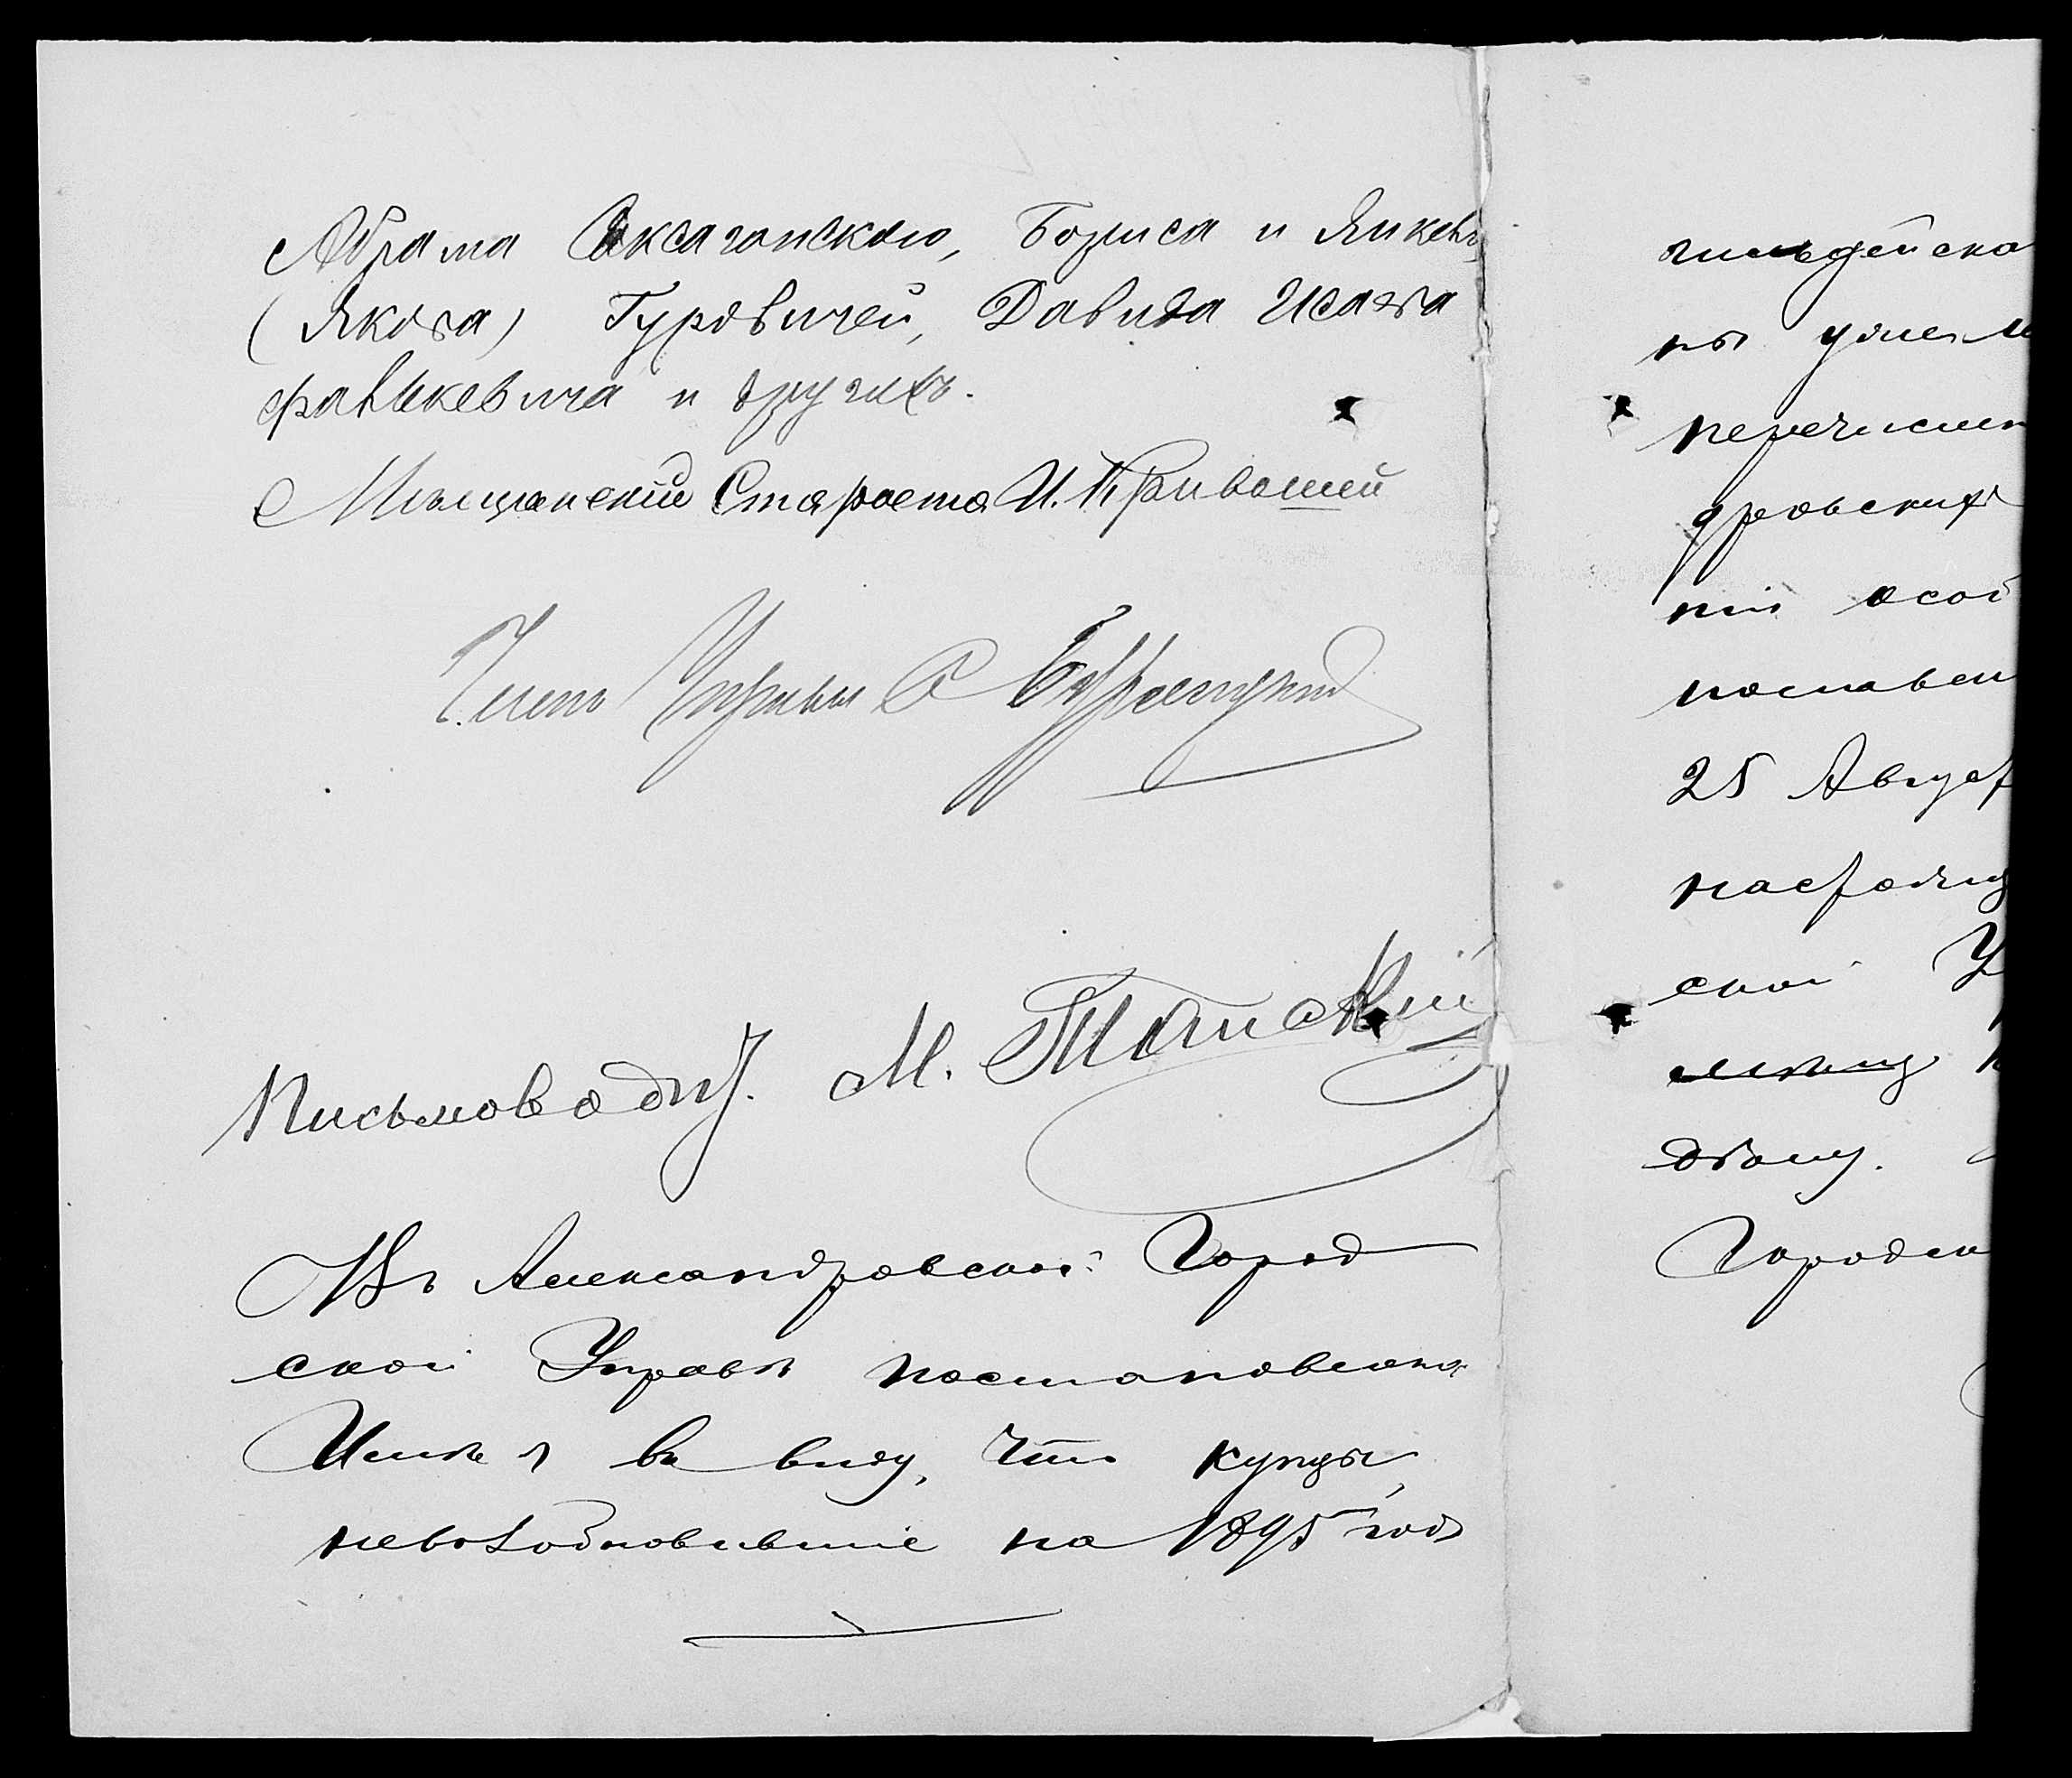 Абрама Саксаганскаго, Бориса и Янкеля
(Якова) Гуровичей, Давида Исаева
Фалькевича и другихъ.
Мѣщанскій Староста И. Кривошей
Членъ Управы С
Письмоводит. М.
Въ Александровской Город
ской Управѣ постановлено:
Имѣя въ виду, что купцы,
невозобновившіе на 1895 годъ
гильдейска
ны
перечислен
дровскихъ
ній особ
поставл
25 Август
настоящ
ской У
Городск